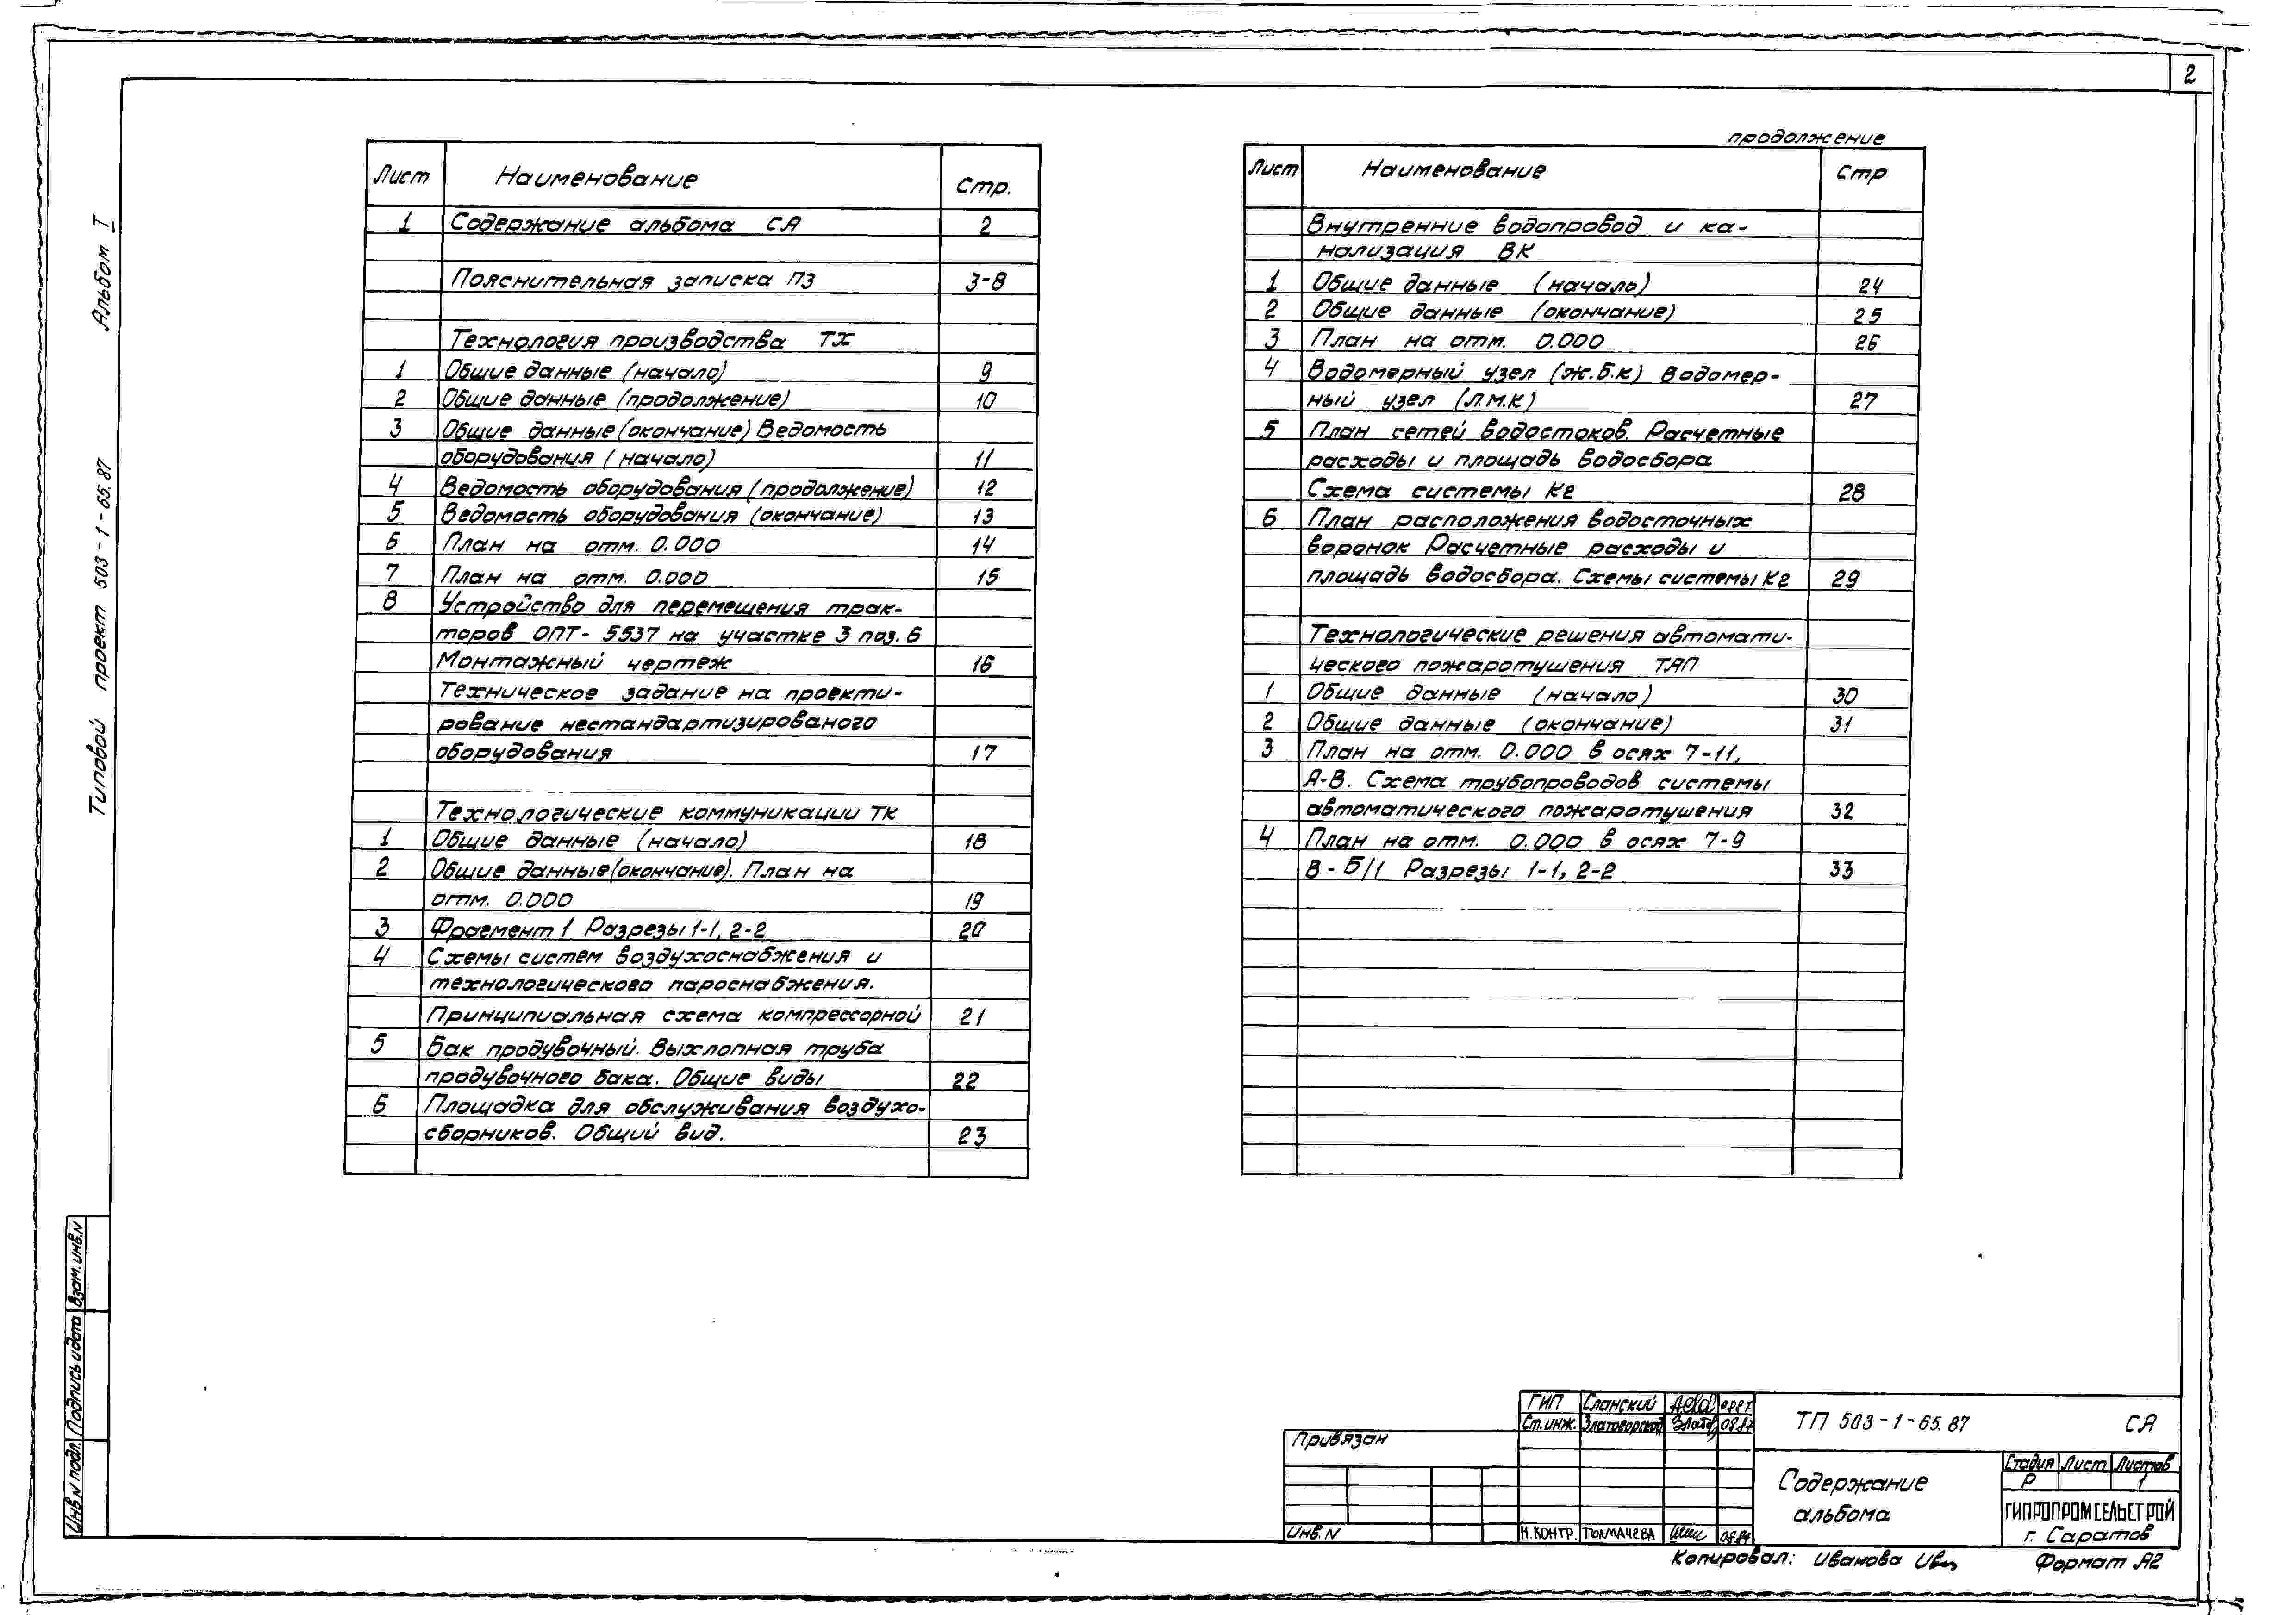 2
Альбом I
Типовой проект 503-1-65.87
Лист Наименование Стр.
1 Содержание альбома СА 2
Пояснительная записка ПЗ 3-8
Технология производства ТХ
1 Общие данные (начало) 9
2 Общие данные (продолжение) 10
3 Общие данные (окончание) Ведомость
оборудования (начало) 11
4 Ведомость оборудования (продолжение) 12
5 Ведомость оборудования (окончание) 13
6 План на отм. 0.000 14
7 План на отм. 0.000 15
8 Устройство для перемещения трак-
торов ОПТ-5537 на участке 3 поз. 6
Монтажный чертеж 16
Техническое задание на проекти-
рование нестандартизированого
оборудования 17
Технологические коммуникации ТК
1 Общие данные (начало) 18
2 Общие данные (окончание). План на
отм. 0.000 19
3 Фрагмент 1 Разрезы 1-1, 2-2 20
4 Схемы систем воздухоснабжения и
технологического пароснабжения.
Принципиальная схема компрессорной 21
5 Бак продувочный. Выхлопная труба
продувочного бака. Общие виды 22
6 Площадка для обслуживания воздухо-
сборников. Общий вид. 23
продолжение
Лист Наименование Стр
Внутренние водопровод и ка-
нализация ВК
1 Общие данные (начало) 24
2 Общие данные (окончание) 25
3 План на отм. 0.000 26
4 Водомерный узел (ж.б.к) Водомер-
ный узел (Л.М.К) 27
5 План сетей водостоков. Расчетные
расходы и площадь водосбора
Схема системы К2 28
6 План расположения водосточных
воронок Расчетные расходы и
площадь водосбора. Схемы системы К2 29
Технологические решения автомати-
ческого пожаротушения ТАП
1 Общие данные (начало) 30
2 Общие данные (окончание) 31
3 План на отм. 0.000 в осях 7-11,
А-В. Схема трубопроводов системы
автоматического пожаротушения 32
4 План на отм. 0.000 в осях 7-9
В-Б/1 Разрезы 1-1, 2-2 33
Инв N подл. Подпись и дата Взам. инв. N
Привязан
Инв. N
ГИП Сланский 0887
Ст. инж. Златогорская 08.87
Н.КОНТР. ТОЛМАЧЕВА
ТП 503-1-65.87 СА
Содержание
альбома
Стадия Лист Листов
Р 1
ГИПРОПРОМСЕЛЬСТРОЙ
г. Саратов
Копировал: Иванова Формат А2